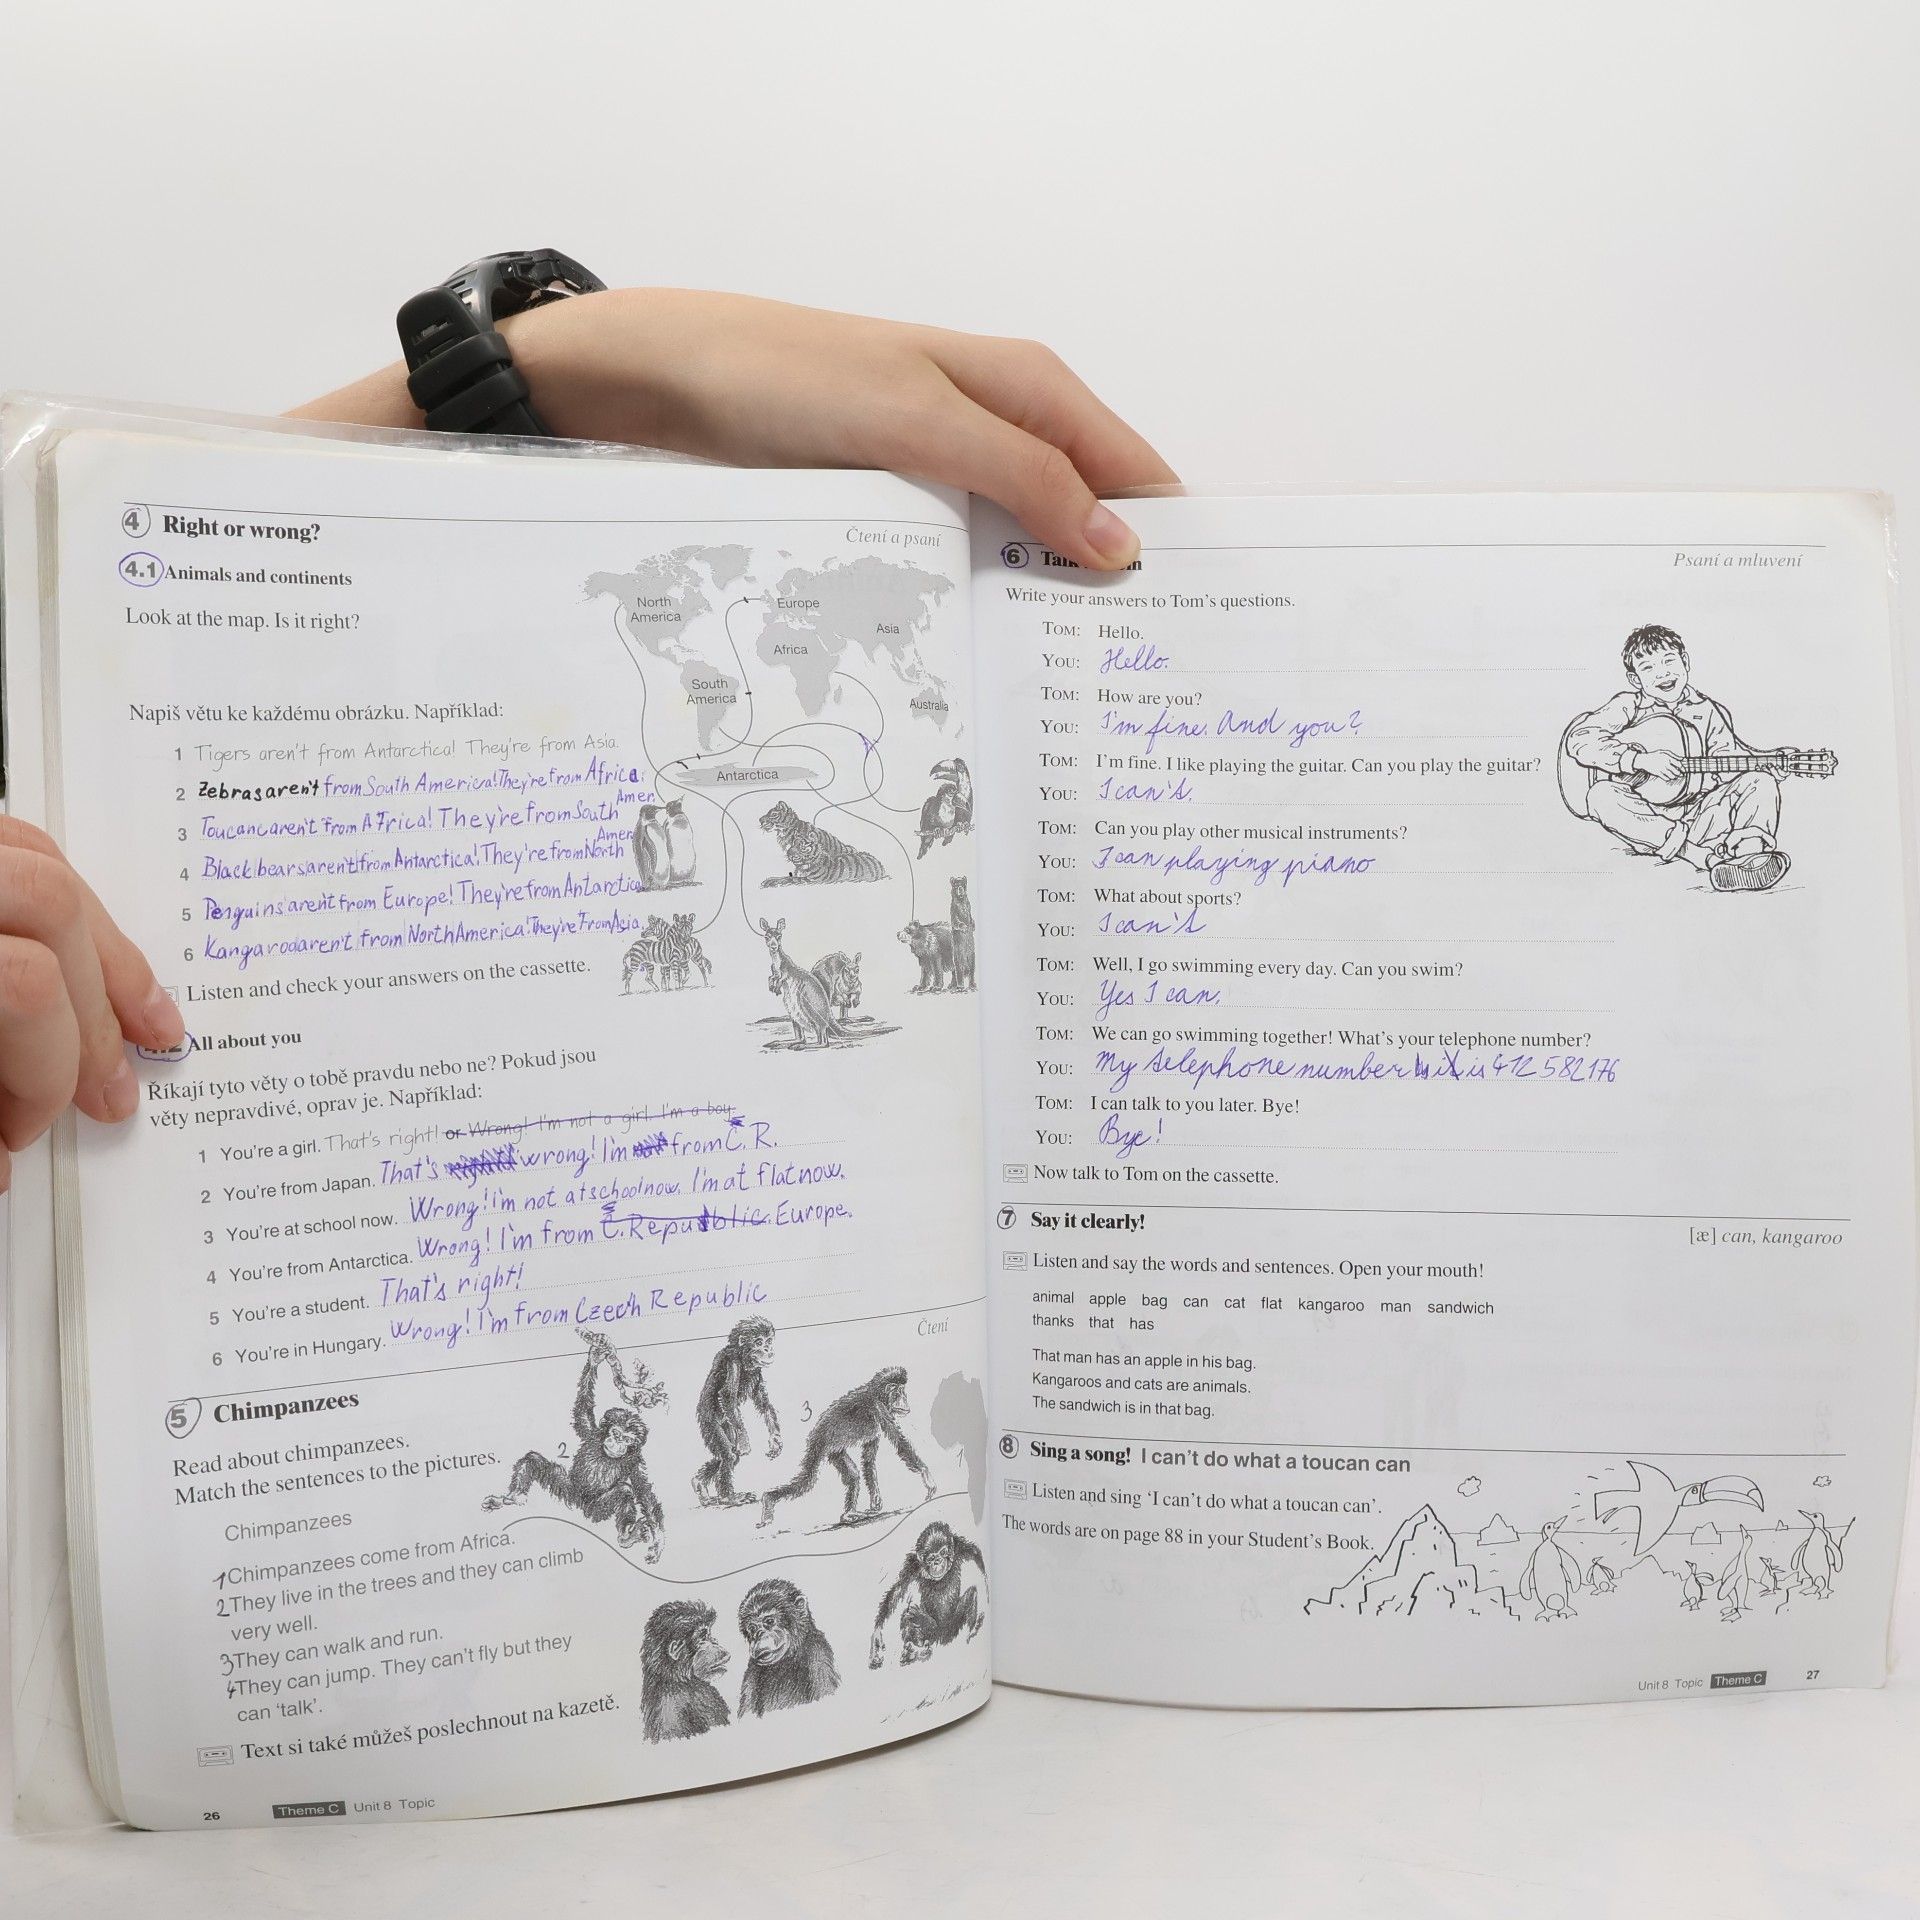 4 Right or wrong?
Čtení a psaní
4.1 Animals and continents
Look at the map. Is it right?
North America
Europe
Asia
Africa
South America
Australia
Antarctica
Napiš větu ke každému obrázku. Například:
1 Tigers aren't from Antarctica! They're from Asia.
2 Zebras aren't from South America! They're from Africa.
Amer.
3 Toucanc aren't from Africa! They're from South
Amer.
4 Black bears aren't from Antarctica! They're from North
5 Penguins aren't from Europe! They're from Antarctica
6 Kangaroo aren't from North America! They're From Asia.
Listen and check your answers on the cassette.
4.2 All about you
Říkají tyto věty o tobě pravdu nebo ne? Pokud jsou
věty nepravdivé, oprav je. Například:
1 You're a girl. That's right! or Wrong! I'm not a girl. I'm a boy.
2 You're from Japan. That's wrong! I'm from Č. R.
3 You're at school now. Wrong! I'm not at school now. I'm at flat now.
4 You're from Antarctica. Wrong! I'm from Č. Republic. Europe.
5 You're a student. That's right!
6 You're in Hungary. Wrong! I'm from Czech Republic
Čtení
5 Chimpanzees
Read about chimpanzees.
Match the sentences to the pictures.
2
3
1
Chimpanzees
1 Chimpanzees come from Africa.
2 They live in the trees and they can climb
very well.
3 They can walk and run.
4 They can jump. They can't fly but they
can 'talk'.
Text si také můžeš poslechnout na kazetě.
26 Theme C Unit 8 Topic
6
Psaní a mluvení
Write your answers to Tom's questions.
TOM: Hello.
YOU: Hello.
TOM: How are you?
YOU: I'm fine. And you?
TOM: I'm fine. I like playing the guitar. Can you play the guitar?
YOU: I can't.
TOM: Can you play other musical instruments?
YOU: I can playing piano
TOM: What about sports?
YOU: I can't
TOM: Well, I go swimming every day. Can you swim?
YOU: Yes I can.
TOM: We can go swimming together! What's your telephone number?
YOU: My telephone number is 412 582176
TOM: I can talk to you later. Bye!
YOU: Bye!
Now talk to Tom on the cassette.
7 Say it clearly!
[æ] can, kangaroo
Listen and say the words and sentences. Open your mouth!
animal apple bag can cat flat kangaroo man sandwich
thanks that has
That man has an apple in his bag.
Kangaroos and cats are animals.
The sandwich is in that bag.
8 Sing a song! I can't do what a toucan can
Listen and sing 'I can't do what a toucan can'.
The words are on page 88 in your Student's Book.
Unit 8 Topic Theme C 27